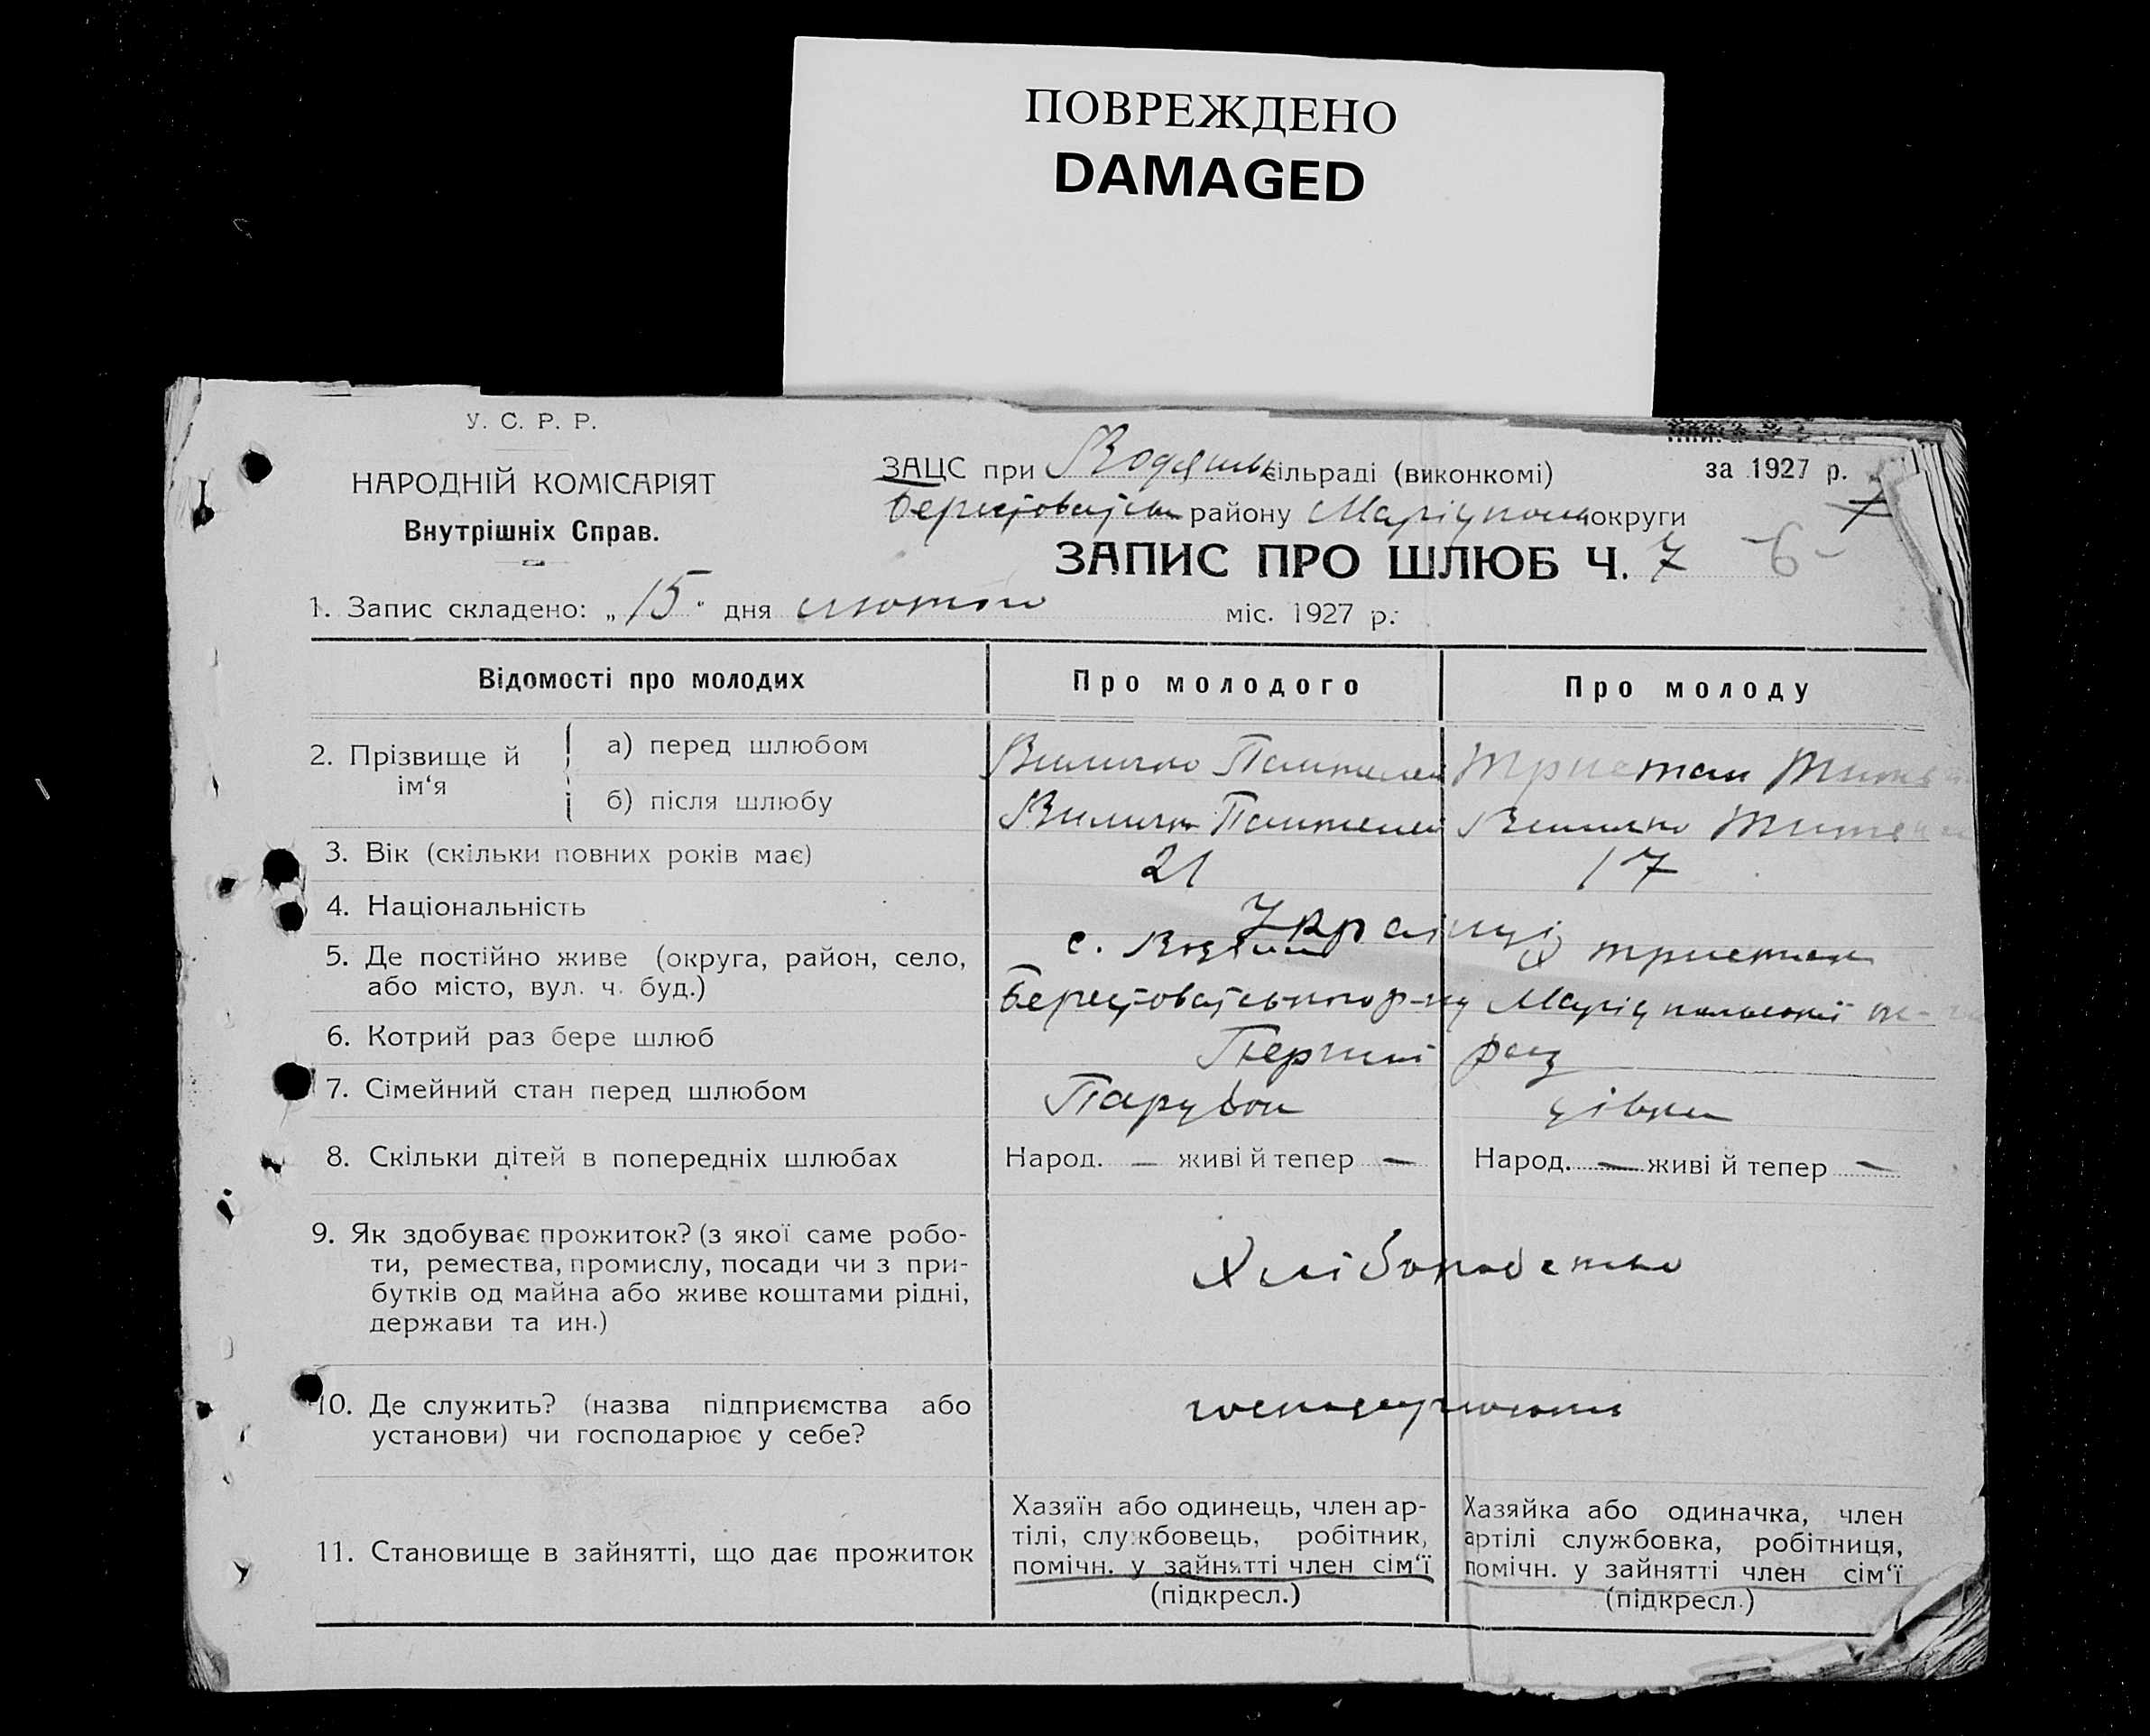 ПОВРЕЖДЕНО
DAMAGED
У. С. Р. Р.
НАРОДНІЙ КОМІСАРІЯТ
Внутрішніх Справ.
ЗАЦС при Водянсь сільраді (виконкомі)
за 1927 р.
району Маріупольс округи
7
ЗАПИС ПРО ШЛЮБ Ч. 7
-6-
1. Запис складено: „15" дня лютого міс. 1927 р.
Відомості про молодих Про молодого Про молоду
2. Прізвище й ім‘я
а) перед шлюбом Пантелей
б) після шлюбу Пантелей
3. Вік (скільки повних років має) 21 17
4. Національність Українці
5. Де постійно живе (округа, район, село, с.
або місто, вул. ч. буд.) р-ну Маріупольської
6. Котрий раз бере шлюб Перший раз
7. Сімейний стан перед шлюбом Парубок дівка
8. Скільки дітей в попередніх шлюбах Народ. — живі й тепер — Народ. — живі й тепер —
9. Як здобуває прожиток? (з якої саме робо-
ти, ремества, промислу, посади чи з при-
бутків од майна або живе коштами рідні,
держави та ин.)
Хліборобство
10. Де служить? (назва підприємства або
установи) чи господарює у себе?
11. Становище в зайнятті, що дає прожиток
Хазяїн або одинець, член ар-
тілі, службовець, робітник,
помічн. у зайнятті член сім‘ї
(підкресл.)
Хазяйка або одиначка, член
артілі службовка, робітниця,
помічн. у зайнятті член сім‘ї
(підкресл.)